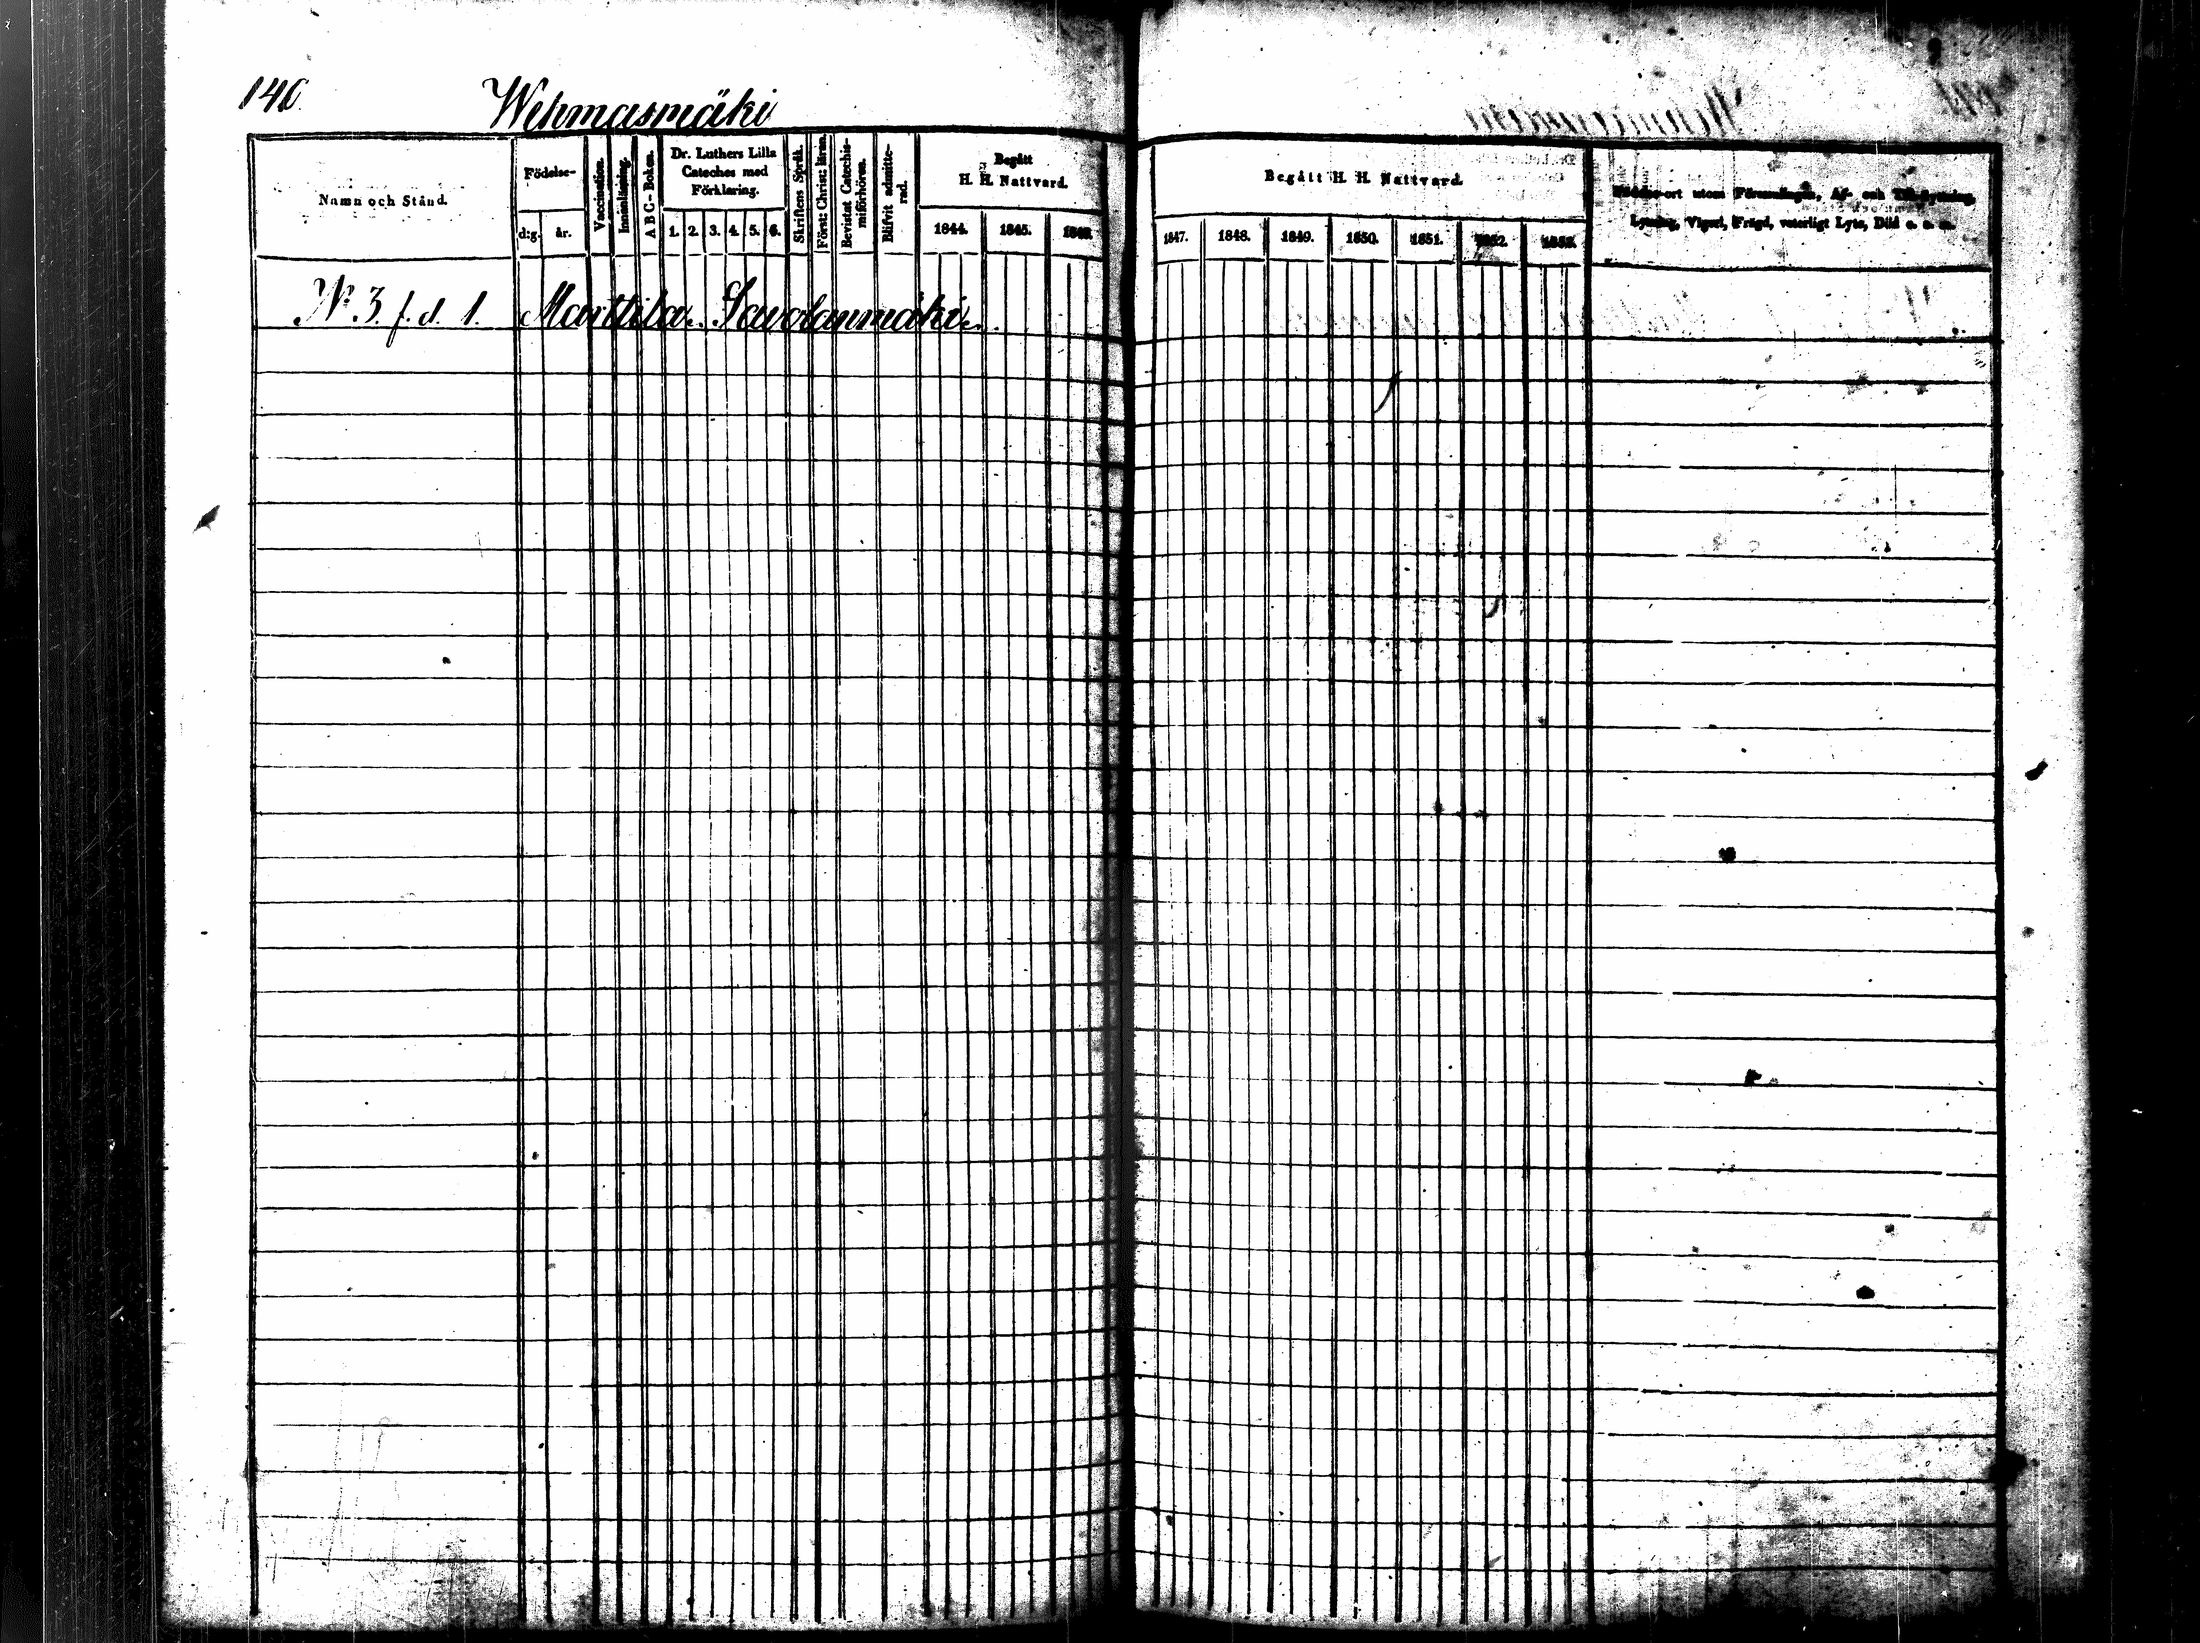 146
Wehmasmäki
Namn och Stånd.
Födelse-
d:g. år.
Vaccination.
Innanläsning.
A B C-Boken.
Dr. Luthers Lilla
Cateches med
Förklaring.
1. 2. 3. 4. 5. 6.
Skriftens Språk.
Först: Christ: läran.
Bevistat Catechis-
miförhören.
Blifvit admitte-
rad.
Begått
H. H. Nattvard.
1844. 1845. 1846.
Begått H. H. Nattvard.
1847. 1848. 1849. 1850. 1851. 1852. 1853.
Födelse-ort utom Församlingen, Af- och Tillflyttning,
Lysning, Vigsel, Frägd, veterligt Lyte, Död o. s. m.
N:o 3. f. d. 1. Marttila Savolanmäki